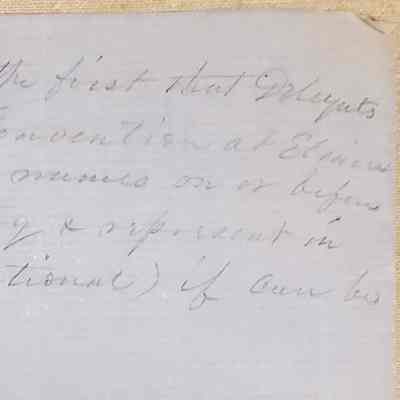 the first that Delegats
onvention at Elmira
names on or before
g & represent in
tional) if can be